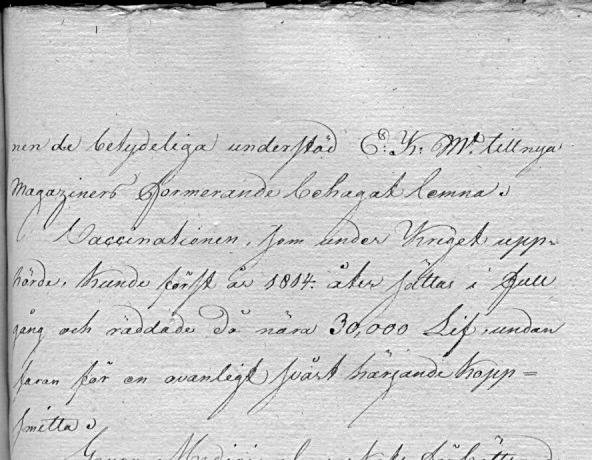 nen de betydeliga understöd E: K: Mt. till nya
Magaziners formerande behagat lemna.
Vaccinationen, som under Kriget upp-
hörde, kunde först år 1814. åter sättas i full
gång och räddade då nära 30,000 Lif undan
faran för en ovanligt svårt härjande Kopp=
smitta.
Genom